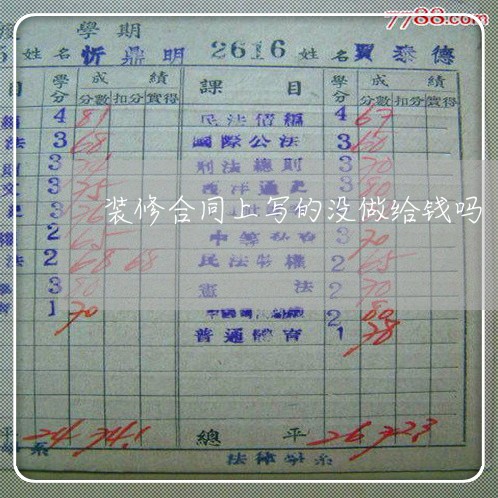 7788.com
學期
姓名 忻鼎明 2616 姓名 賈泰德
目 學分 成績 課目 學分 成績
分數 扣分 實得 分數 扣分 實得
4 81 民法債編 4 67
法 3 68 國際公法 3 60
3 刑法總則 3 70
3 75 西洋通史 3 80
3
2 3 70
法 2 68 68 民法物權 2 65
3 80 憲法 2 70
1 70 2 80
普通體育 1 78
平 24 74.1 總平 26 72.3
系 法律學系
装修合同上写的没做给钱吗